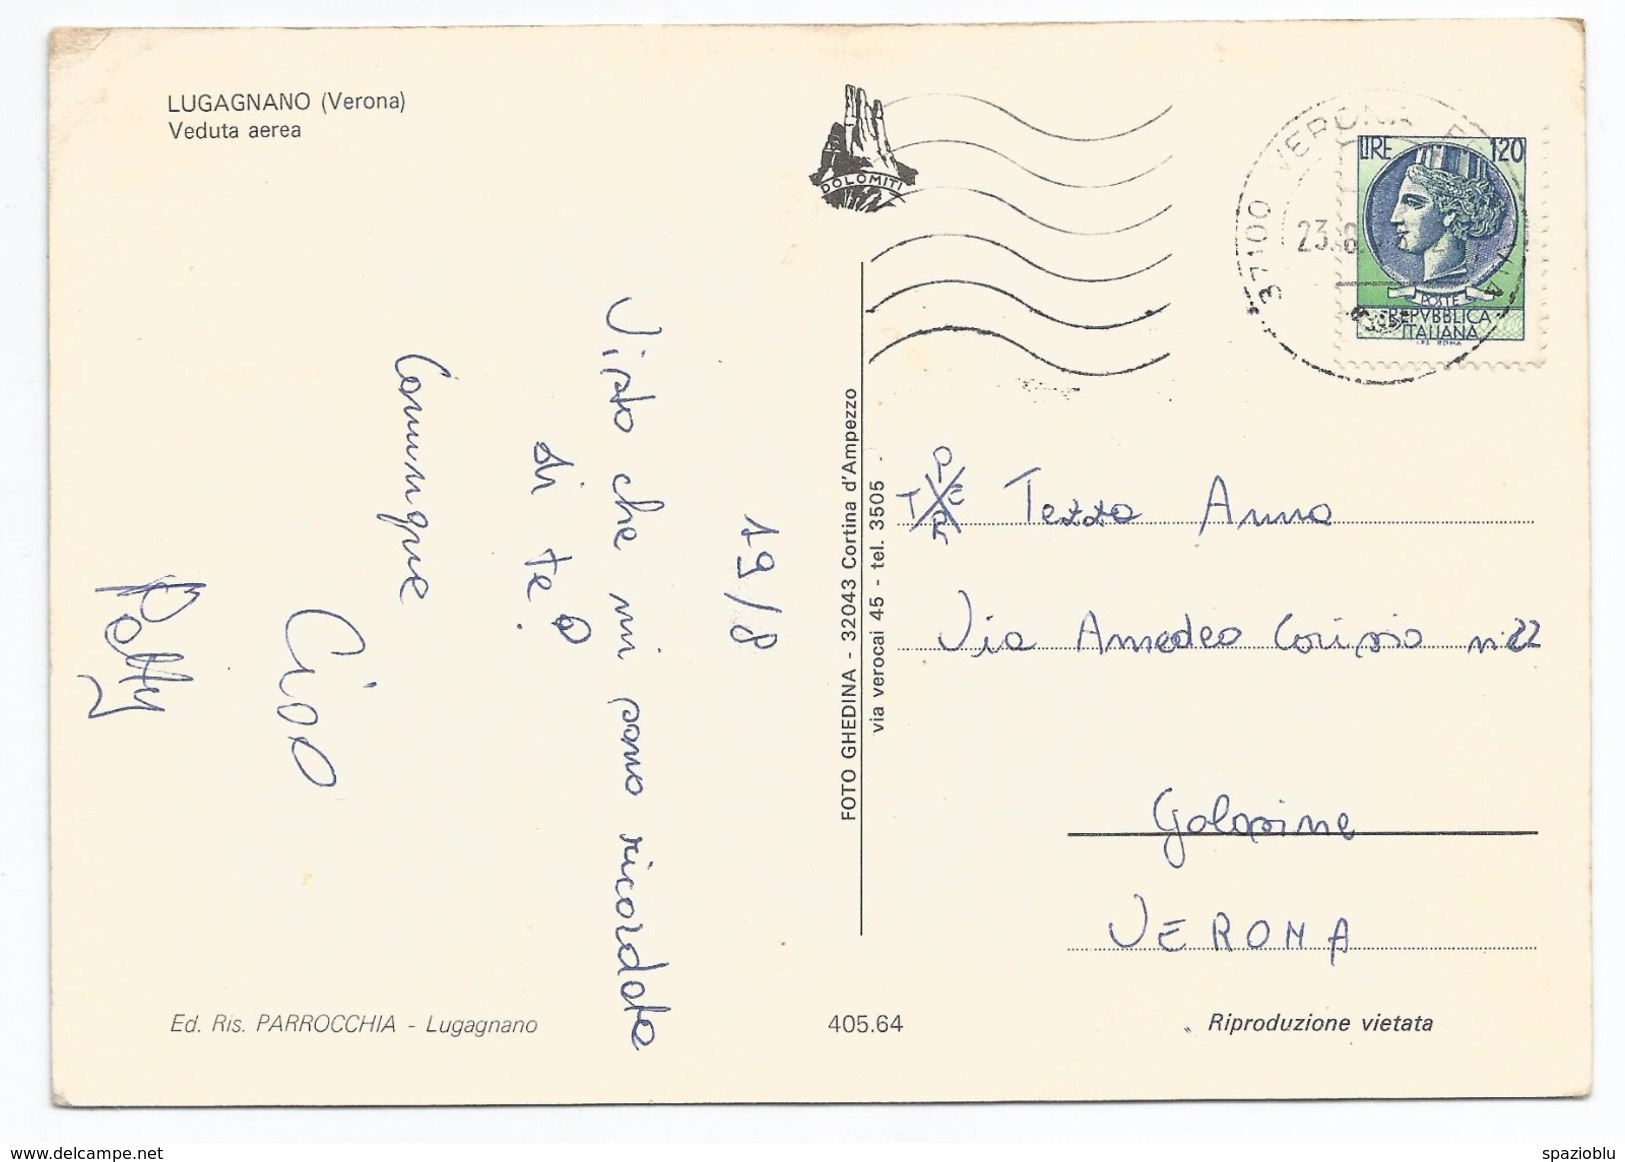 LUGAGNANO (Verona)
Veduta aerea
DOLOMITI
37100 VERONA
23.8
LIRE 120
POSTE
REPVBBLICA
ITALIANA
I.P.S. ROMA
19/8
Visto che mi sono ricordata
di te?
Comunque
Ciao
Patty
FOTO GHEDINA - 32043 Cortina d'Ampezzo
via verocai 45 - tel. 3505
PER
Tezza Anna
Via Amedeo n. 22
Golosine
VERONA
Ed. Ris. PARROCCHIA - Lugagnano
405.64
Riproduzione vietata
delcampe.net
spazioblu